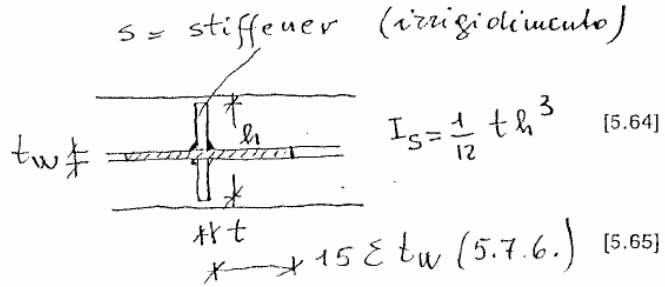 s = stiffener (irrigidimento)
h
I_s = 1/12 t h³ [5.64]
t_w
t
15 ε t_w (5.7.6.) [5.65]